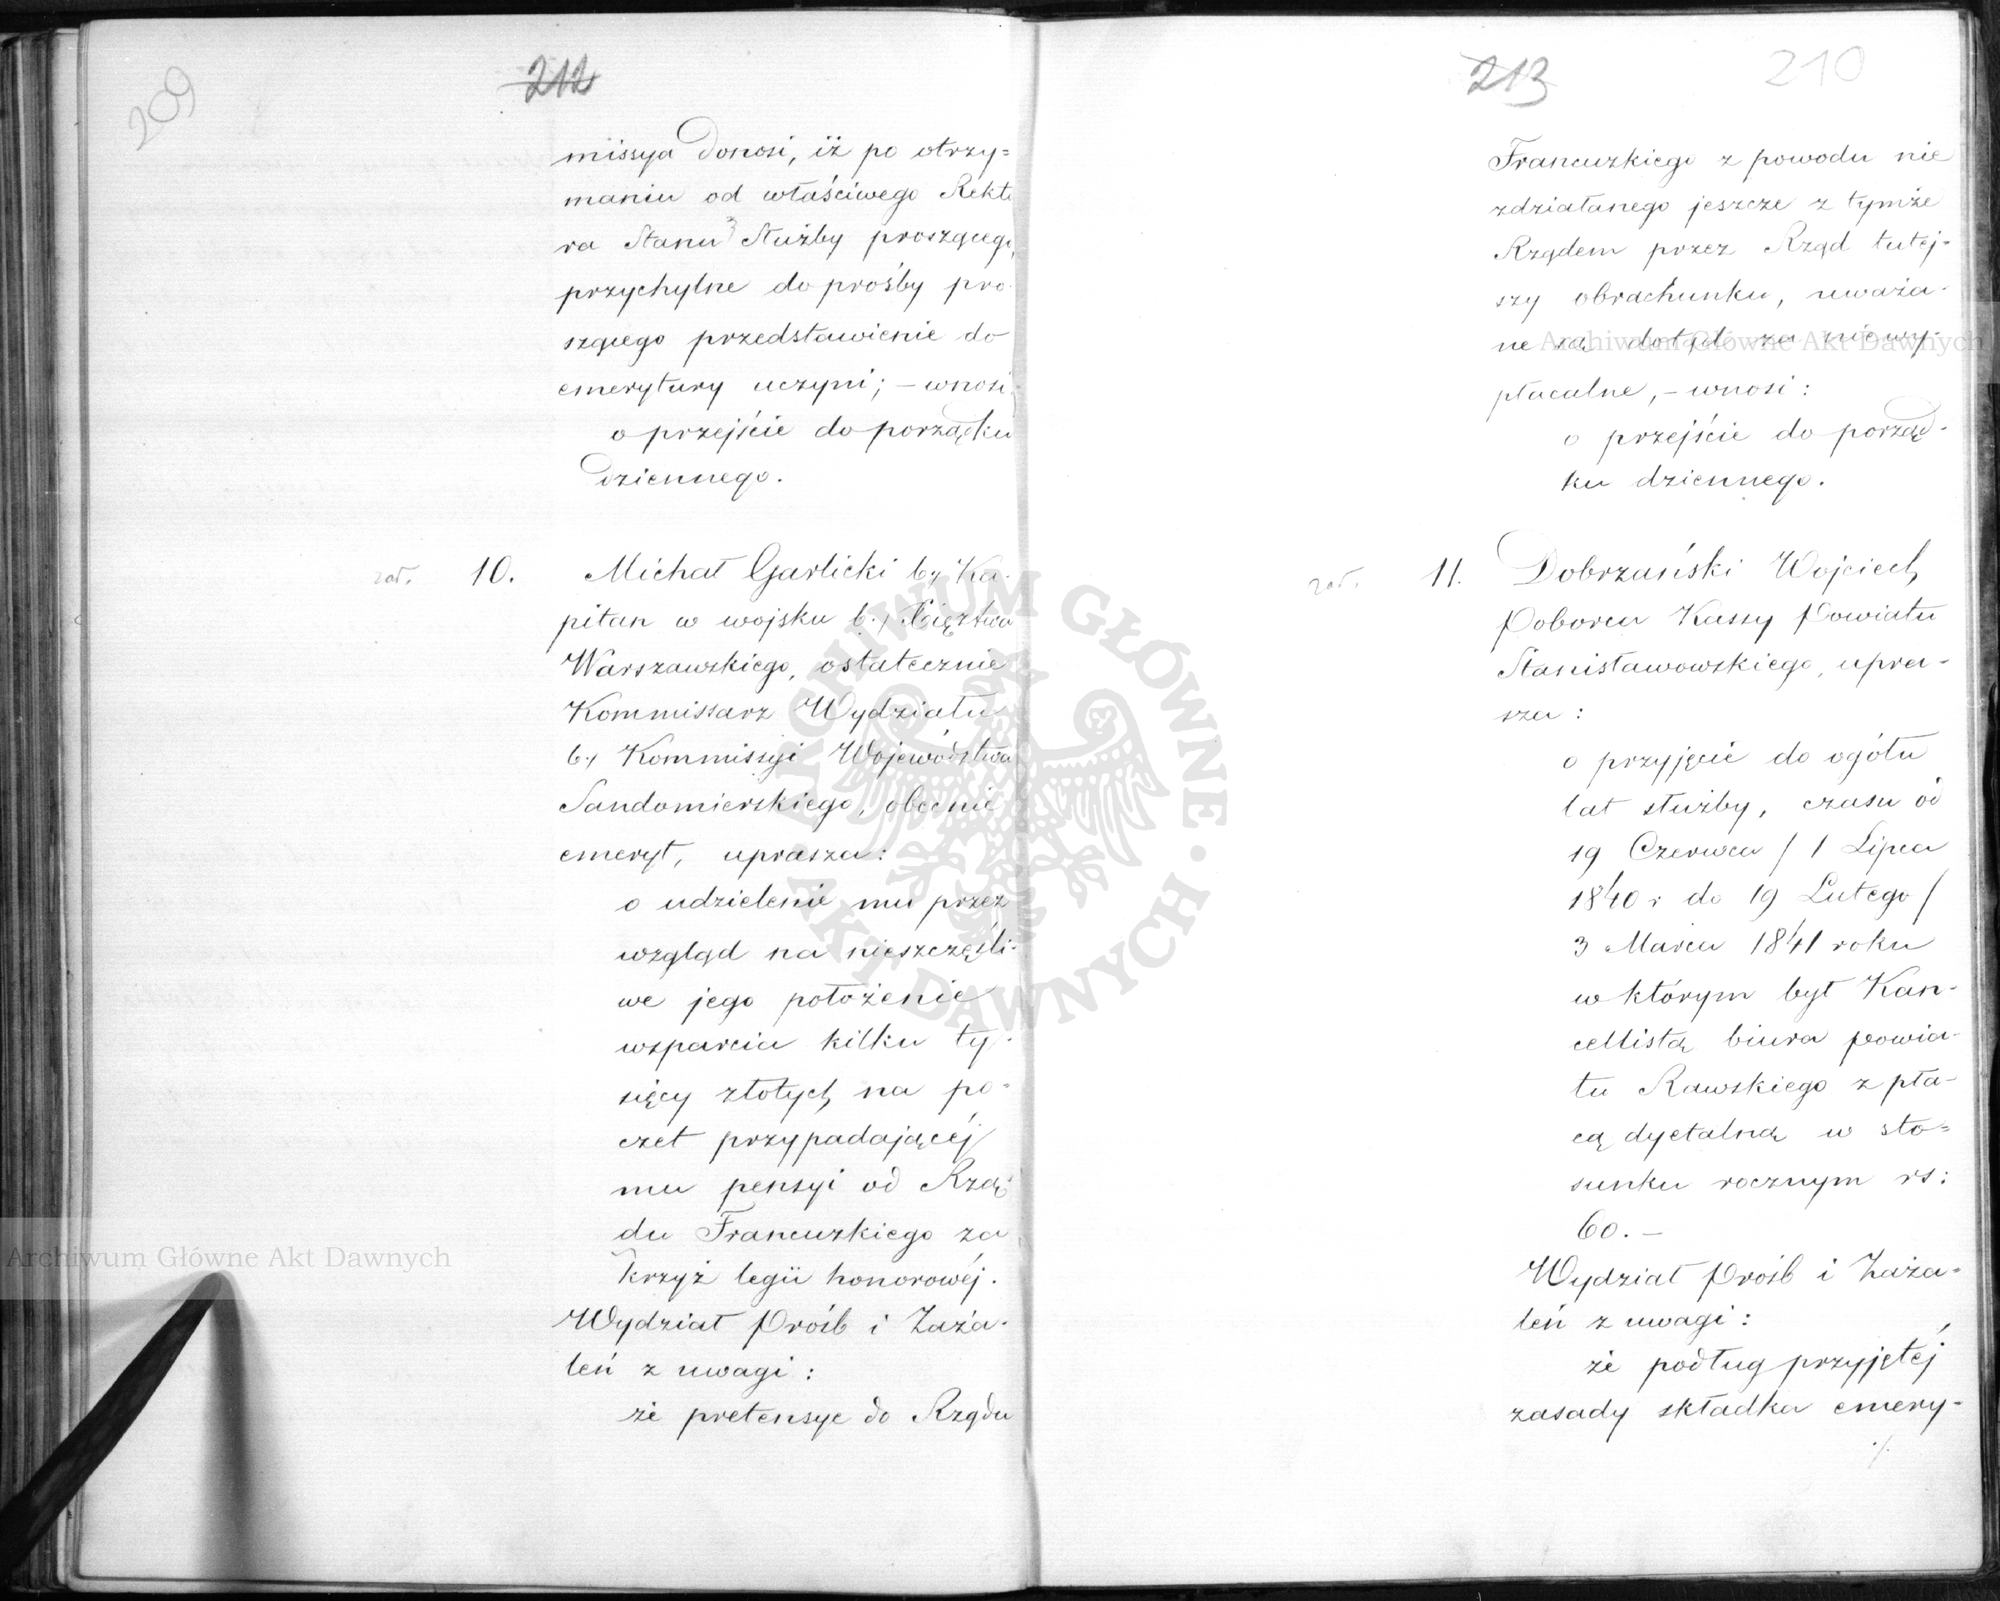 209
212
missya donosi, iż po otrzy=
maniu od właściwego Rekto
ra Stanu Służby proszącego,
przychylne do prośby pro
szącego przedstawienie do
emerytury uczyni; – wnosi:
o przejście do porządku
dziennego.
zał. 10. Michał Garlicki b. Ka-
pitan w wojsku b. Xięztwa
Warszawskiego, ostatecznie
Kommissarz Wydziału
b. Kommissyi Województwa
Sandomierskiego, obecnie
emeryt, uprasza:
o udzielenie mu przez
wzgląd na nieszczęśli-
we jego położenie
wsparcia kilku ty-
sięcy złotych na po-
czet przypadającéj
mu pensyi od Rzą-
du Francuzkiego za
krzyż legii honorowéj.
Wydział Próśb i Zaża-
leń z uwagi:
że pretensye do Rządu
213
210
Francuzkiego z powodu nie
zdziałanego jeszcze z tymże
Rządem przez Rząd tutej-
szy obrachunku, uważa-
ne są dotąd za niewy-
płacalne, – wnosi:
o przejście do porząd-
ku dziennego.
zał. 11. Dobrzański Wojciech
Poborca Kassy Powiatu
Stanisławowskiego, upra-
sza:
o przyjęcie do ogółu
lat służby, czasu od
19 Czerwca / 1 Lipca
1840 r do 19 Lutego /
3 Marca 1841 roku
w którym był Kan-
cellistą biura powia-
tu Rawskiego z pła-
cą dyetalną w sto=
sunku rocznym rs:
60. –
Wydział Próśb i Zaża-
leń z uwagi:
że podług przyjętéj
zasady składka emery-
·/·
Archiwum Główne Akt Dawnych
Archiwum Główne Akt Dawnych
ARCHIWUM GŁÓWNE
AKT DAWNYCH